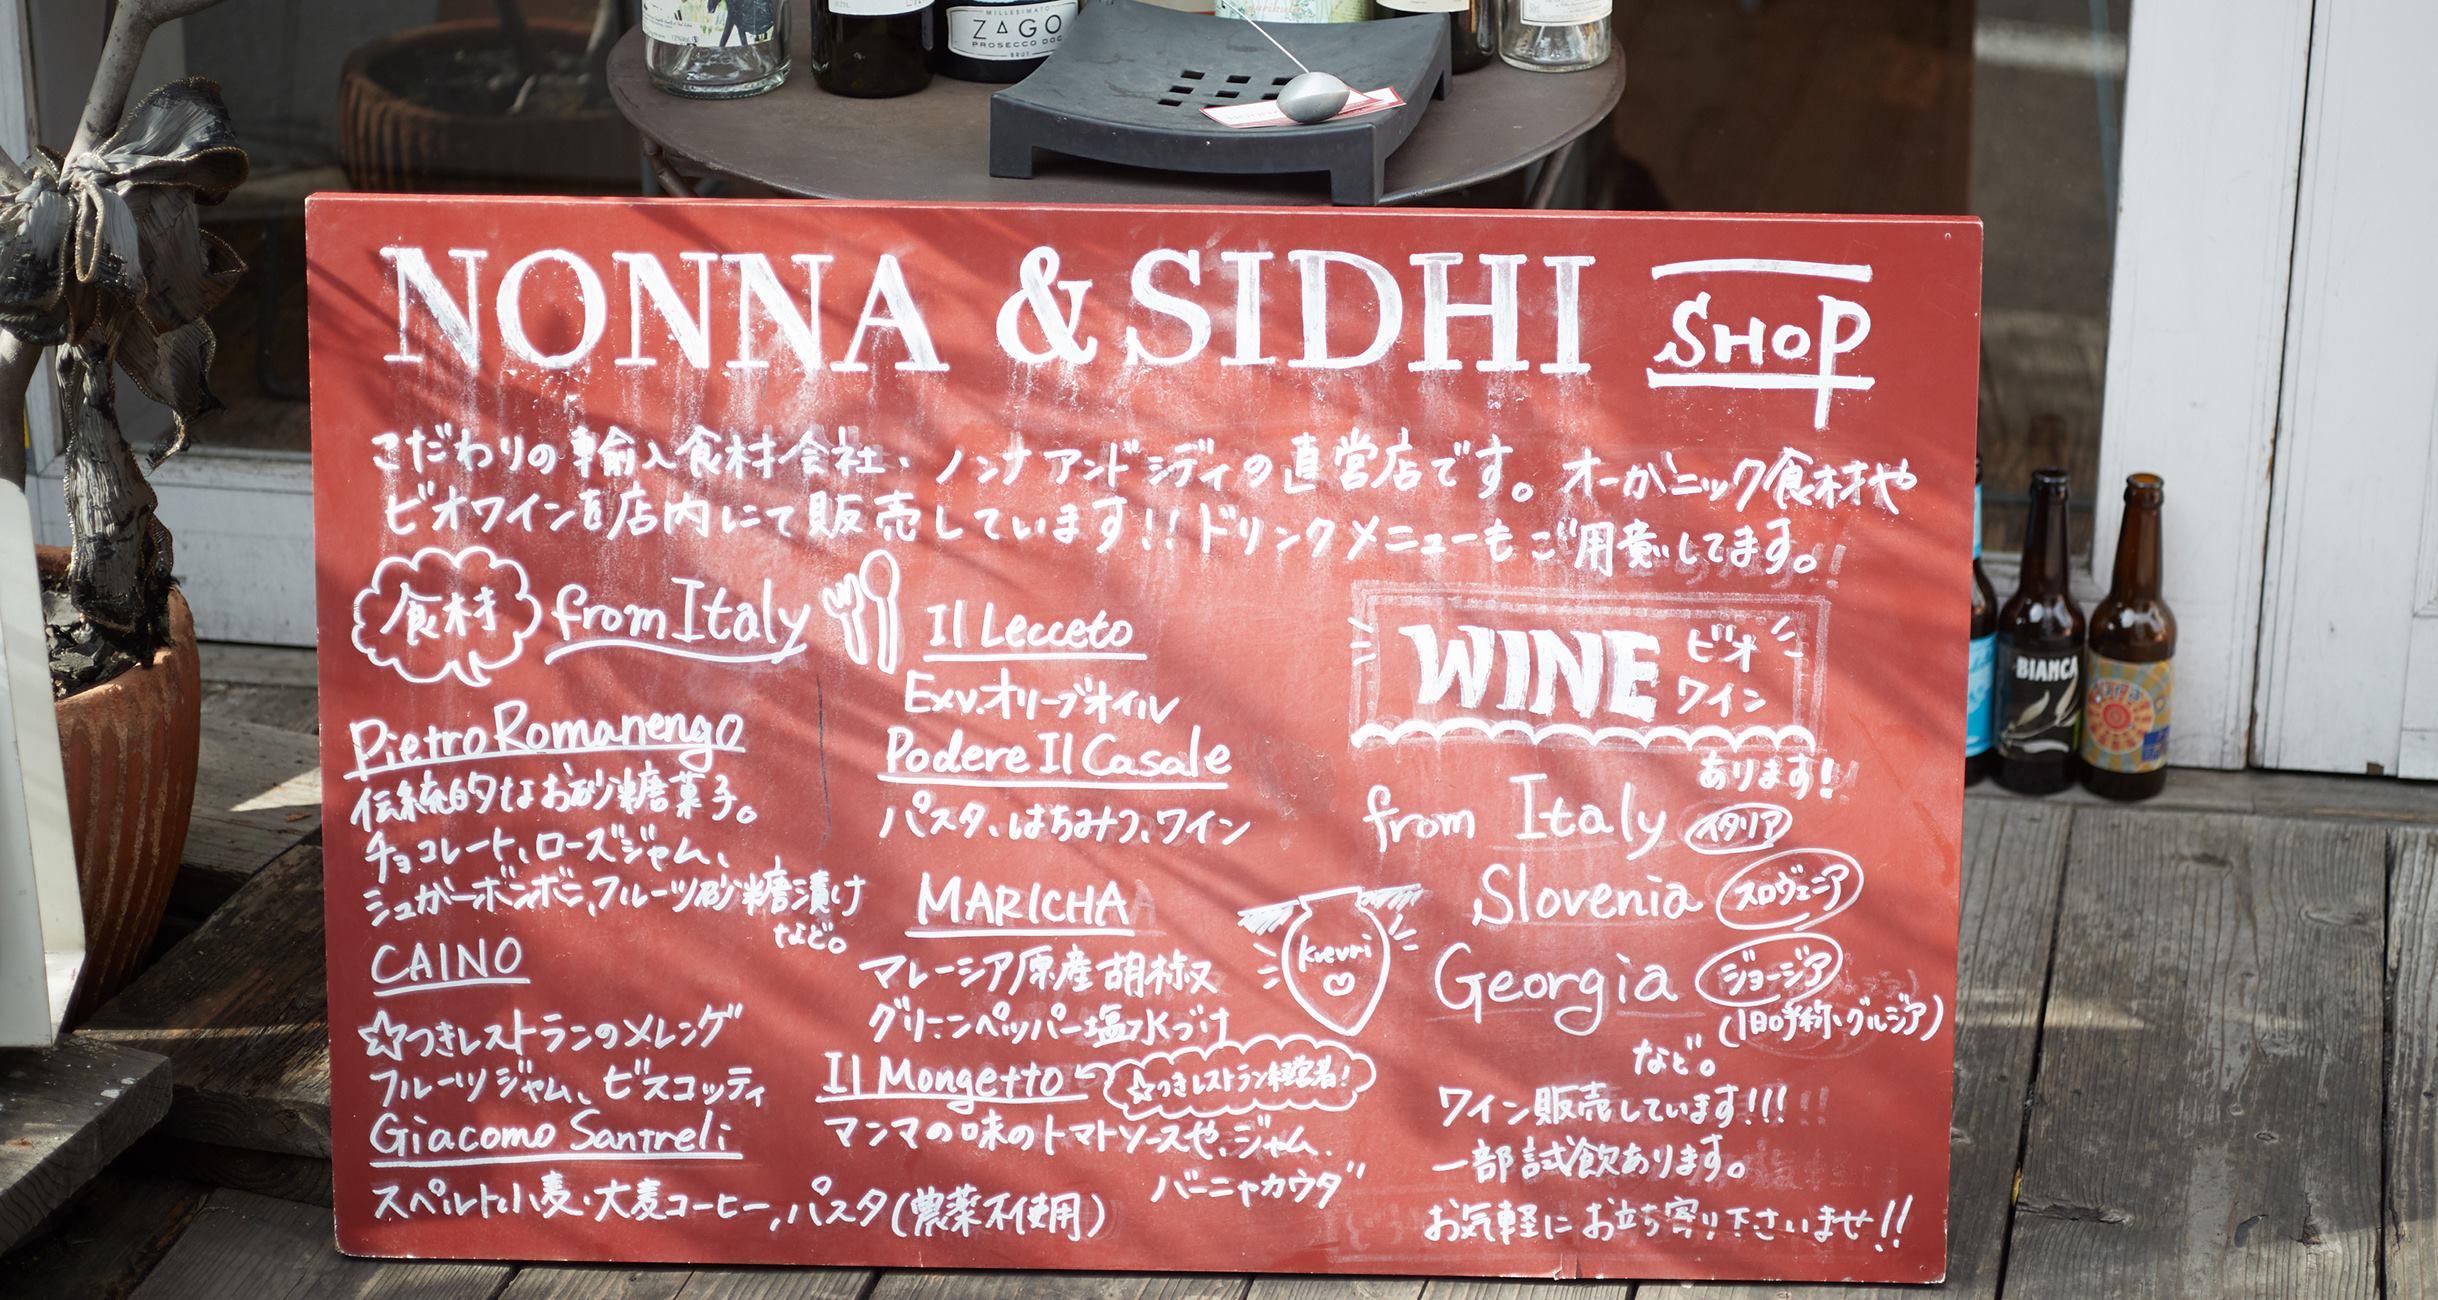 ZAGO
PROSECCO DOC
BRUT
NONNA & SIDHI SHOP
こだわりの輸入食材会社、ノンナアンドシディの直営店です。オーガニック食材や
ビオワインを店内にて販売しています!!ドリンクメニューもご用意してます。
食材 from Italy
Pietro Romanengo
伝統的なお砂糖菓子。
チョコレート、ローズジャム、
シュガーボンボン、フルーツ砂糖漬け
など。
CAINO
☆つきレストランのメレンゲ
フルーツジャム、ビスコッティ
Giacomo Santreli
スペルト小麦・大麦コーヒー,パスタ(農薬不使用)
Il Lecceto
Exv.オリーブオイル
Podere Il Casale
パスタ、はちみつ、ワイン
MARICHA
マレーシア原産胡椒
グリーンペッパー塩水づけ
Il Mongetto
☆つきレストラン経営者!
マンマの味のトマトソースや、ジャム、
バーニャカウダ
WINE ビオ
ワイン
あります!
from Italy イタリア
Slovenia スロヴェニア
Kvevri
Georgia ジョージア
(旧呼称、グルジア)
など。
ワイン販売しています!!!
一部試飲あります。
お気軽にお立ち寄り下さいませ!!
BIANCA